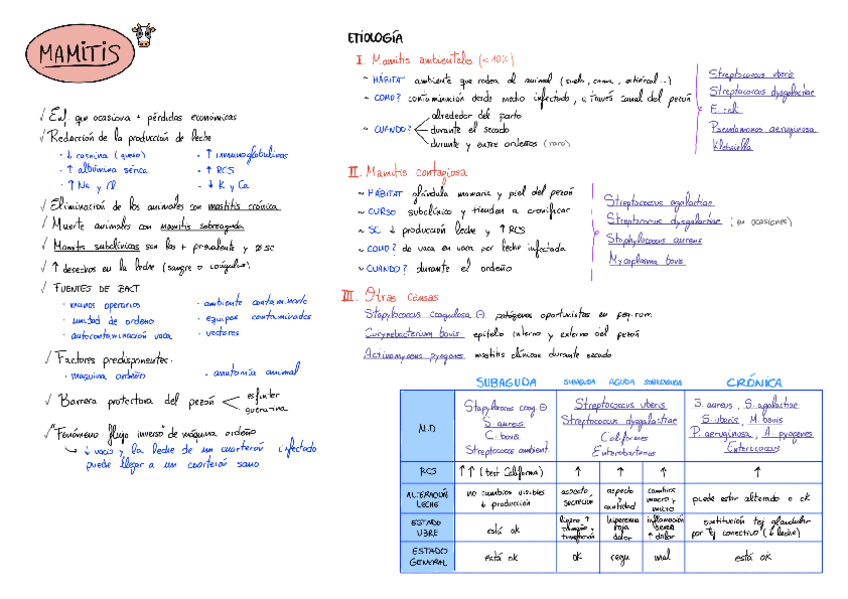 MAMITIS
✓ Enf. que ocasiona + pérdidas económicas
✓ Reducción de la producción de leche
· ↓ caseína (queso)
· ↑ inmunoglobulinas
· ↑ albúmina sérica
· ↑ RCS
· ↑ Na y Cl
· ↓ K y Ca
✓ Eliminación de los animales con mastitis crónica
✓ Muerte animales con mamitis sobreaguda
✓ Mamitis subclínicas son las + prevalente y ∅ SC
✓ ↑ desechos en la leche (sangre o coágulos)
✓ FUENTES DE BACT
· manos operarios
· ambiente contaminante
· unidad de ordeño
· equipos contaminados
· autocontaminación vaca
· vectores
✓ Factores predisponentes.
· maquina ordeño
· anatomía animal
✓ Barrera protectora del pezón
esfínter
queratina
✓ "Fenómeno flujo inverso" de máquina ordeño
↳ ↓ vacío y la leche de un cuarterón infectado
puede llegar a un cuarterón sano
ETIOLOGÍA
I. Mamitis ambientales (<10%)
~ HÁBITAT ambiente que rodea al animal (suelo, cama, estiércol...)
~ COMO? contaminación desde medio infectado, a través canal del pezón
~ CUANDO?
alrededor del parto
durante el secado
durante y entre ordeños (raro)
Streptococcus uberis
Streptococcus dysgalactiae
E. coli
Pseudomonas aeruginosa
Klebsiella
II. Mamitis contagiosa
~ HÁBITAT glándula mamaria y piel del pezón
~ CURSO subclínico y tienden a cronificar
~ SC ↓ producción leche y ↑ RCS
~ COMO? de vaca en vaca por leche infectada
~ CUANDO? durante el ordeño
Streptococcus agalactiae
Streptococcus dysgalactiae (en ocasiones)
Staphylococcus aureus
Mycoplasma bovis
III. Otras causas
Stapylococcus coagulasa ⊖ patógenos oportunistas en
Corynebacterium bovis epitelio interno y externo del pezón
Actinomyces pyogenes mastitis clínicas durante secado
SUBAGUDA
SUBAGUDA AGUDA SOBREAGUDA
CRÓNICA
Stapylococcus coag ⊖
S. aureus
C. bovis
Streptococcus ambient.
Streptococcus uberis
Streptococcus dysgalactiae
Coliformes
Enterobacterias
S. aureus, S. agalactiae
S. uberis, M. bovis
P. aeruginosa, A. pyogenes
Enterococcus
RCS
↑↑ (test California)
↑
↑
↑
↑
ALTERACIÓN LECHE
no cambios visibles
↓ producción
aspecto, secreción
aspecto y cantidad
cambios macro y micro
puede estar alterado o ok
ESTADO UBRE
está ok
ligero ↑ tamaño y
hiperemia roja dolor
inflamación ↑ dolor
sustitución tej glandular
por tej conectivo (↓ leche)
ESTADO GENERAL
está ok
ok
regu
mal
está ok